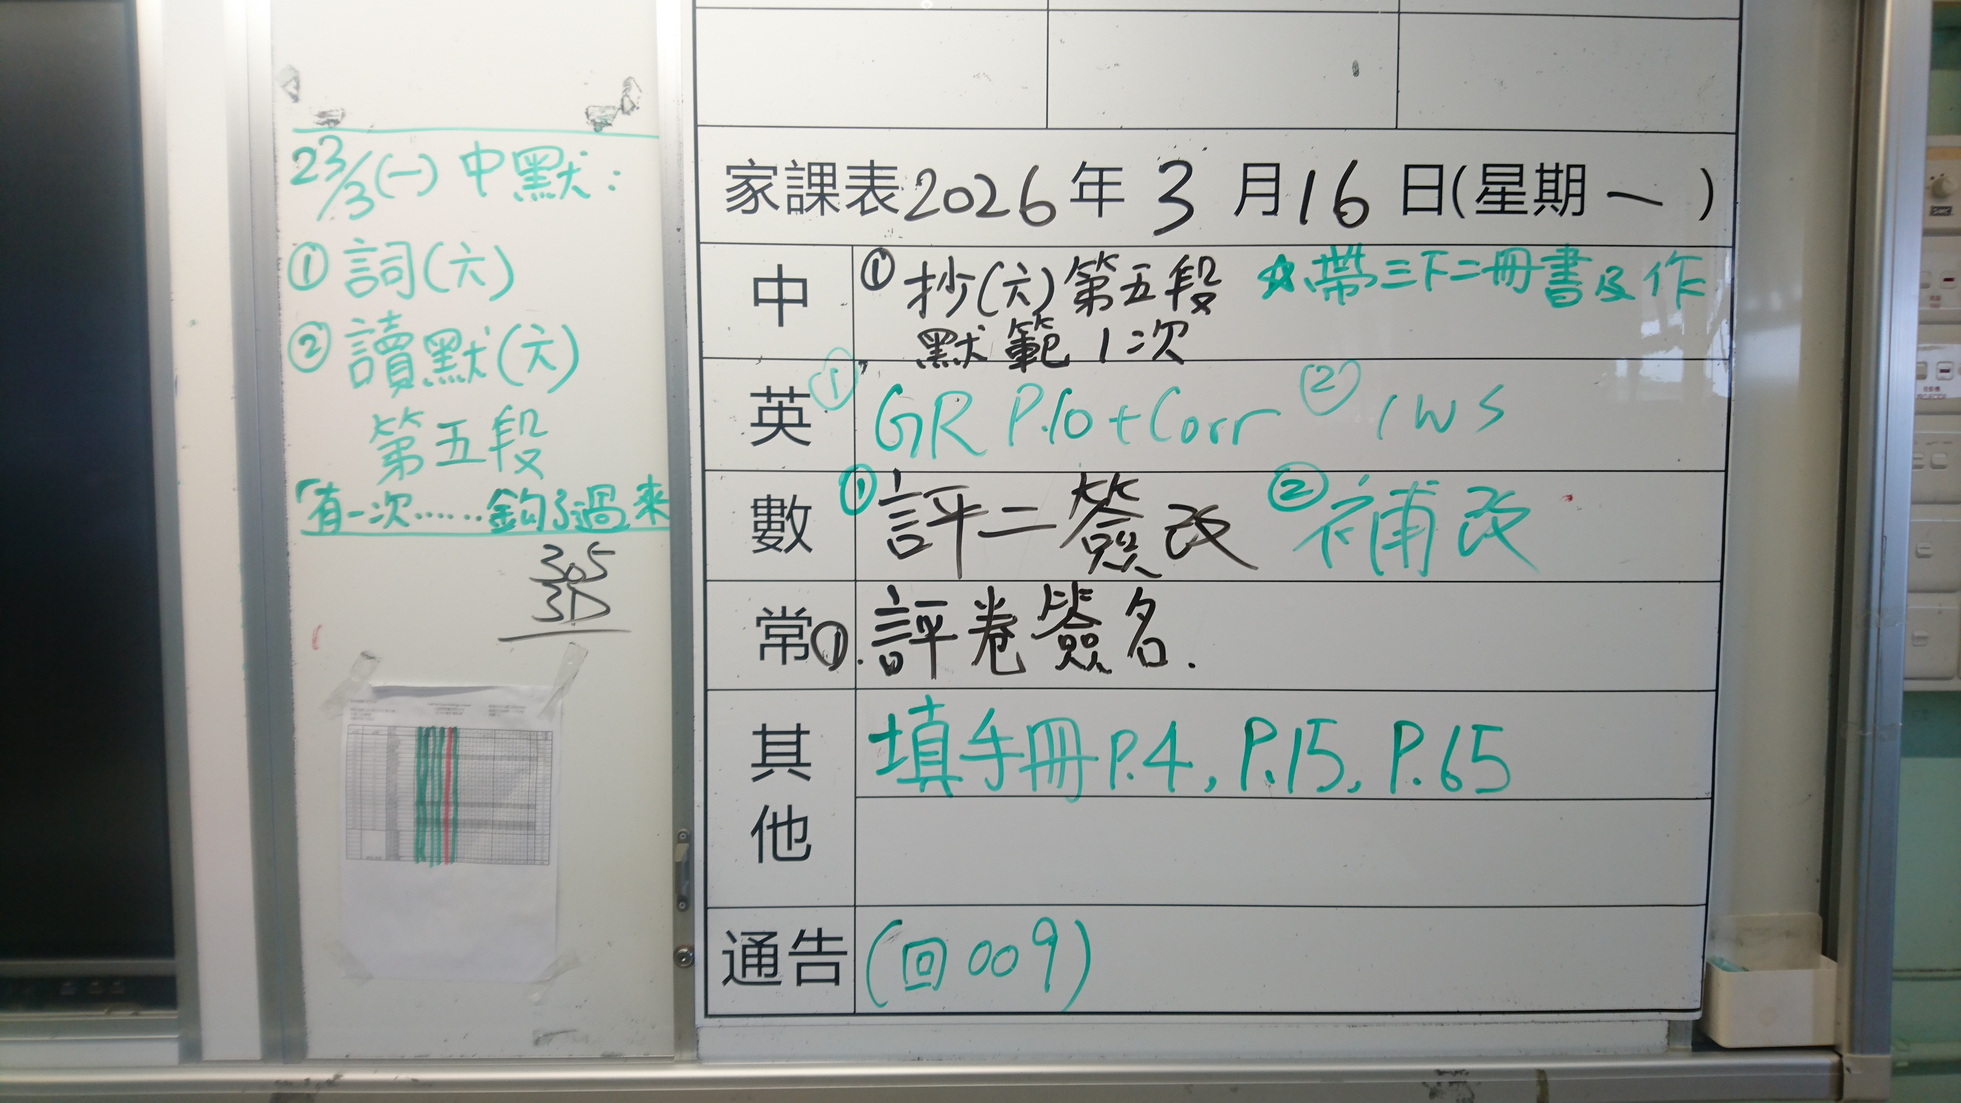 23/3(一) 中默:
① 詞(六)
② 讀默(六)
第五段
「有一次……鈎了過來
3.5
3D
家課表2026年3月16日(星期一)
中 ①抄(六)第五段 ☆帶三下二冊書及作
默範1次
英 ① GR P.10+Corr ② 1WS
數 ①評二簽改 ②補改
常 ①.評卷簽名.
其他 填手冊P.4, P.15, P.65
通告 (回009)